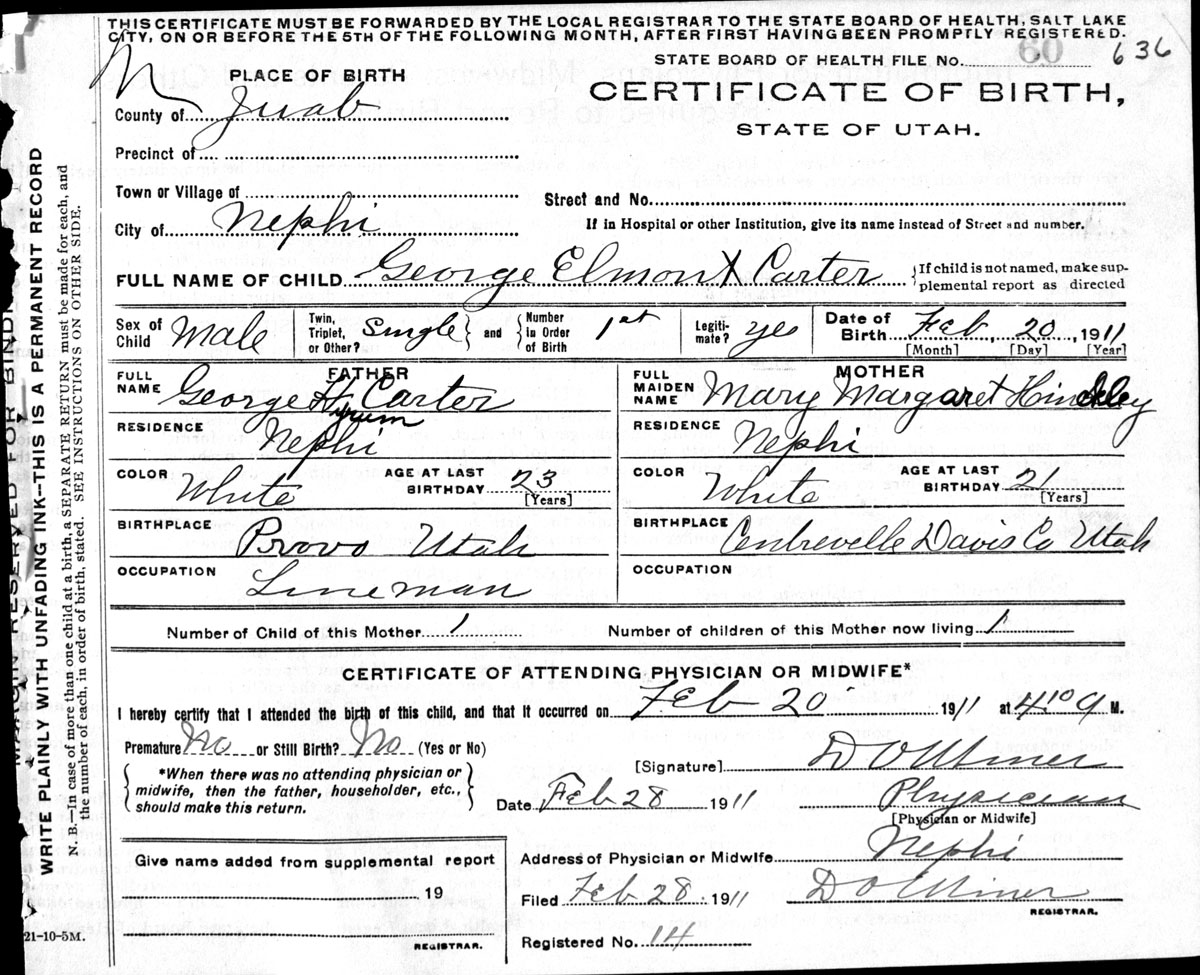 THIS CERTIFICATE MUST BE FORWARDED BY THE LOCAL REGISTRAR TO THE STATE BOARD OF HEALTH, SALT LAKE
CITY, ON OR BEFORE THE 5TH OF THE FOLLOWING MONTH, AFTER FIRST HAVING BEEN PROMPTLY REGISTERED.
STATE BOARD OF HEALTH FILE No. 60 636
PLACE OF BIRTH
CERTIFICATE OF BIRTH,
STATE OF UTAH.
County of Juab
Precinct of
Town or Village of
Street and No.
City of Nephi
If in Hospital or other Institution, give its name instead of Street and number.
FULL NAME OF CHILD George Elmont Carter {If child is not named, make sup-
plemental report as directed
Sex of Child Male
Twin, Triplet, or Other? Single } and { Number in Order of Birth 1st
Legiti-mate? yes
Date of Birth Feb 20, 1911
[Month] [Day] [Year]
FATHER
FULL NAME George Hyrum Carter
MOTHER
FULL MAIDEN NAME Mary Margaret Hinckley
RESIDENCE Nephi
RESIDENCE Nephi
COLOR White AGE AT LAST BIRTHDAY 23 [Years]
COLOR White AGE AT LAST BIRTHDAY 21 [Years]
BIRTHPLACE Provo Utah
BIRTHPLACE Centrevelle Davis Co Utah
OCCUPATION Lineman
OCCUPATION
Number of Child of this Mother 1 Number of children of this Mother now living 1
CERTIFICATE OF ATTENDING PHYSICIAN OR MIDWIFE*
I hereby certify that I attended the birth of this child, and that it occurred on Feb 20 1911 at 4 10 a M.
Premature No or Still Birth? No (Yes or No)
{ *When there was no attending physician or
midwife, then the father, householder, etc.,
should make this return. }
[Signature] D O Miner
Date Feb 28 1911 Physician
[Physician or Midwife]
Give name added from supplemental report
19
REGISTRAR.
Address of Physician or Midwife Nephi
Filed Feb 28 1911 D O Miner
REGISTRAR.
Registered No. 14
21-10-5M.
MARGIN RESERVED FOR BINDING
WRITE PLAINLY WITH UNFADING INK--THIS IS A PERMANENT RECORD
N. B.—In case of more than one child at a birth, a SEPARATE RETURN must be made for each, and
the number of each, in order of birth, stated. SEE INSTRUCTIONS ON OTHER SIDE.